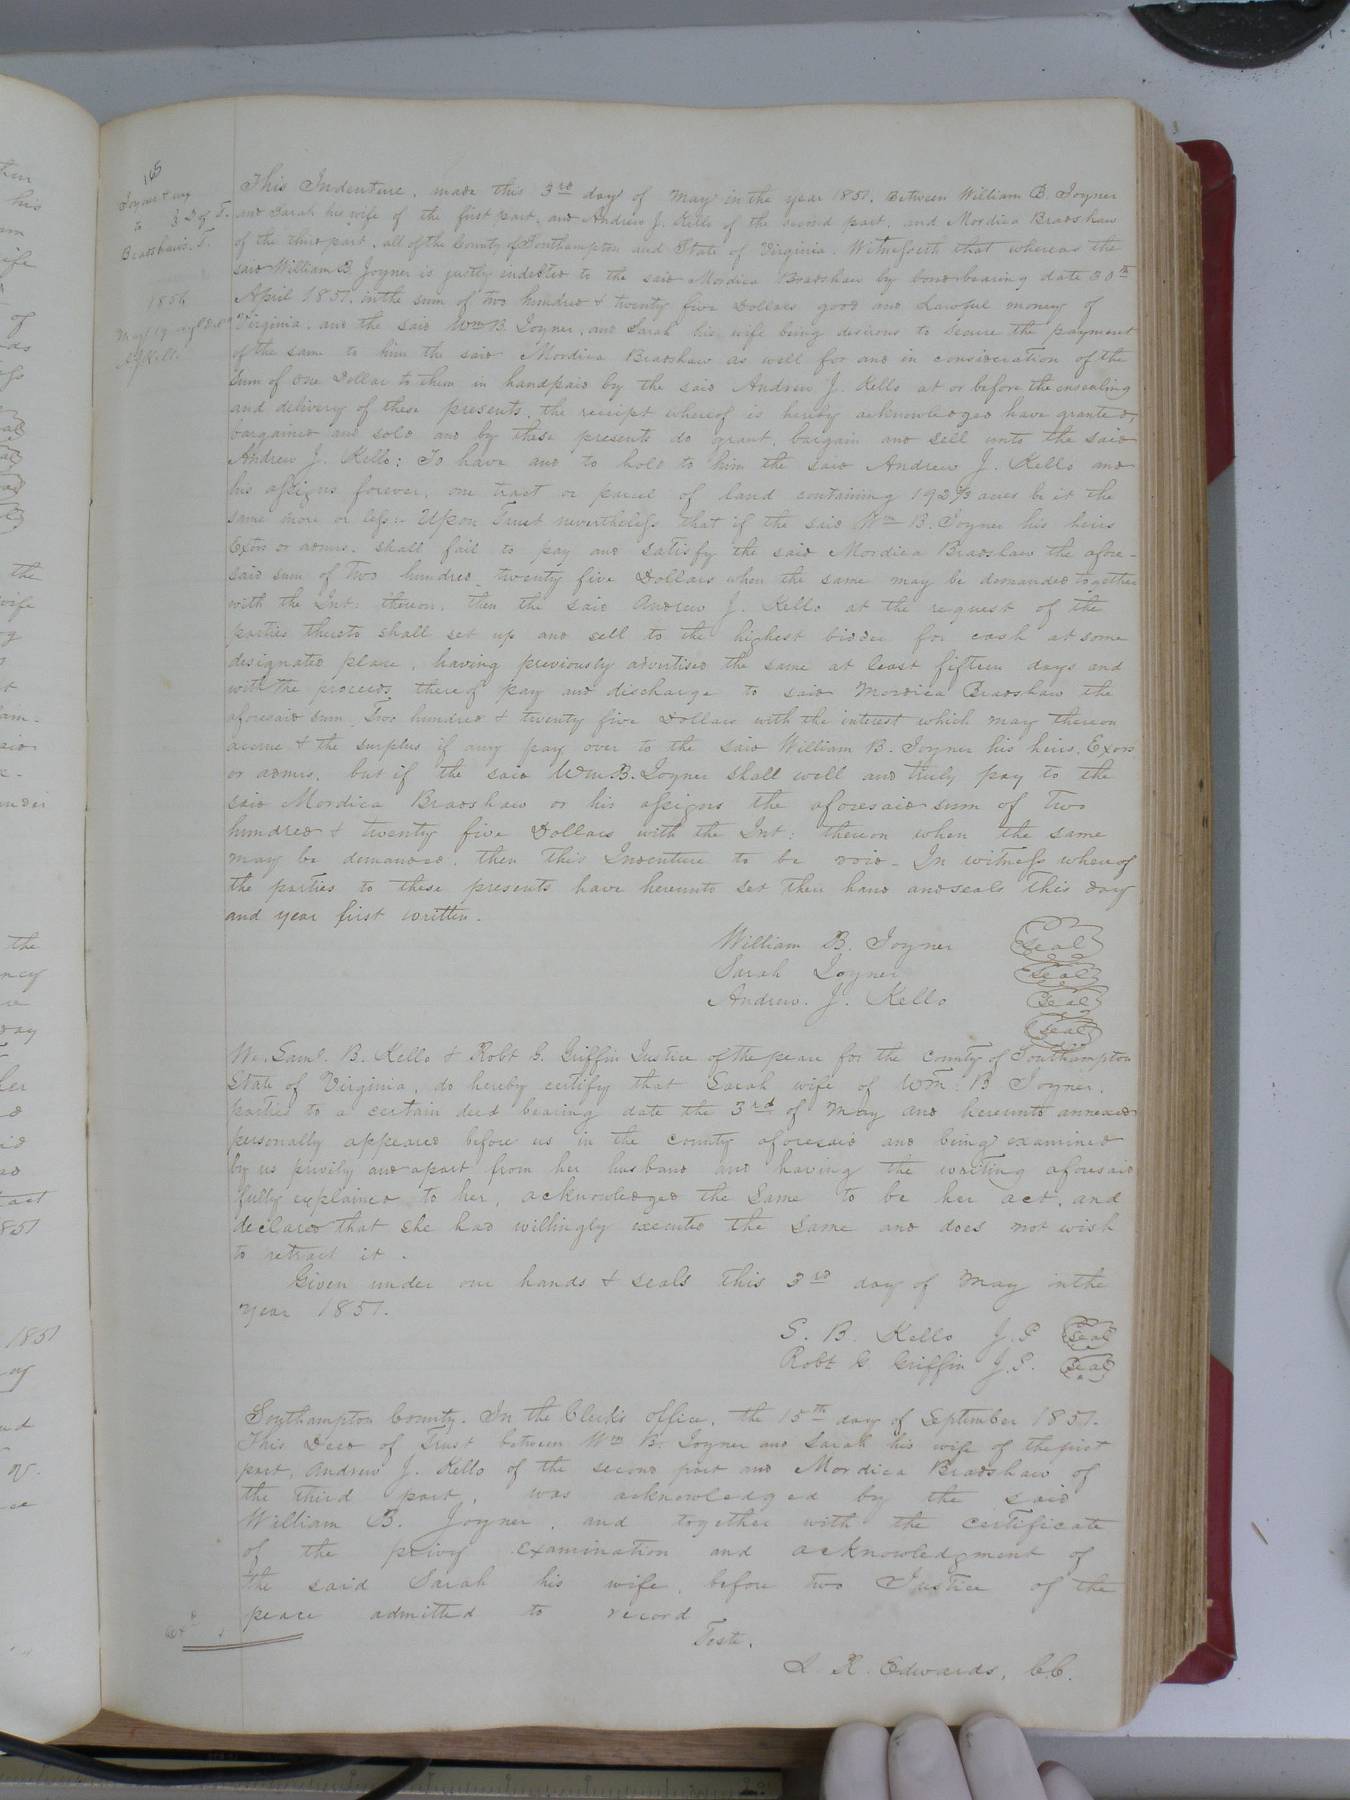 165
Joyner & ux
to } D of T.
Bradshaw's T.
1856
May 19
A J Kello
This Indenture, made this 3rd day of May in the year 1851, Between William B. Joyner
and Sarah his wife of the first part, and Andrew J. Kello of the second part, and Mordica Bradshaw
of the third part, all of the County of Southampton and State of Virginia. Witnesseth that whereas the
said William B Joyner is justly indebted to the said Mordica Bradshaw by bond bearing date 30th
April 1851. in the sum of two hundred & twenty five Dollars good and Lawful money of
Virginia, and the said Wm B Joyner, and Sarah his wife being desirous to secure the payment
of the same to him the said Mordica Bradshaw as well for and in consideration of the
sum of one Dollar to them in hand paid by the said Andrew J. Kello at or before the ensealing
and delivery of these presents, the receipt whereof is hereby acknowledged have granted,
bargained and sold and by these presents do grant, bargain and sell unto the said
Andrew J. Kello: To have and to hold to him the said Andrew J. Kello and
his assigns forever, one tract or parcel of land containing acres be it the
same more or less:- Upon Trust nevertheless that if the said Wm B. Joyner his heirs
Exors or admrs. shall fail to pay and satisfy the said Mordica Bradshaw the afore-
said sum of Two hundred twenty five Dollars when the same may be demanded together
with the Int: thereon, then the said Andrew J. Kello at the request of the
parties thereto shall set up and sell to the highest bidder for cash at some
designated place, having previously advertised the same at least fifteen days and
with the proceeds thereof pay and discharge to said Mordica Bradshaw the
aforesaid sum Two hundred & twenty five Dollars with the interest which may thereon
accrue & the surplus if any pay over to the said William B. Joyner his heirs, Exors
or admrs. but if the said Wm B. Joyner shall well and truly pay to the
said Mordica Bradshaw or his assigns the aforesaid sum of Two
hundred & twenty five Dollars with the Int: thereon when the same
may be demanded, then this Indenture to be void - In witness whereof
the parties to these presents have hereunto set their hand and seals this day
and year first written.
William B. Joyner Seal
Sarah Joyner Seal
Andrew. J. Kello Seal
Seal
We. Saml. B. Kello & Robt G. Griffin Justice of the peace for the county of Southampton
State of Virginia, do hereby certify that Sarah wife of Wm: B Joyner.
parties to a certain deed bearing date the 3rd of May and hereunto annexed
personally appeared before us in the county aforesaid and being examined
by us privily and apart from her husband and having the writing aforesaid
fully explained to her, acknowledged the Same to be her act, and
declared that she had willingly executed the same and does not wish
to retract it.
Given under our hands & seals this 3rd day of May in the
year 1851.
S. B. Kello J.P Seal
Robt G. Griffin J.P. Seal
Southampton County. In the Clerk's office, the 15th day of September 1851.
This Deed of Trust between Wm B. Joyner and Sarah his wife of the first
part, Andrew J. Kello of the second part and Mordica Bradshaw of
the third part, was acknowledged by the said
William B. Joyner, and together with the certificate
of the privy examination and acknowledgment of
the said Sarah his wife, before two Justice of the
peace admitted to record
Teste.
L R. Edwards, C.C.